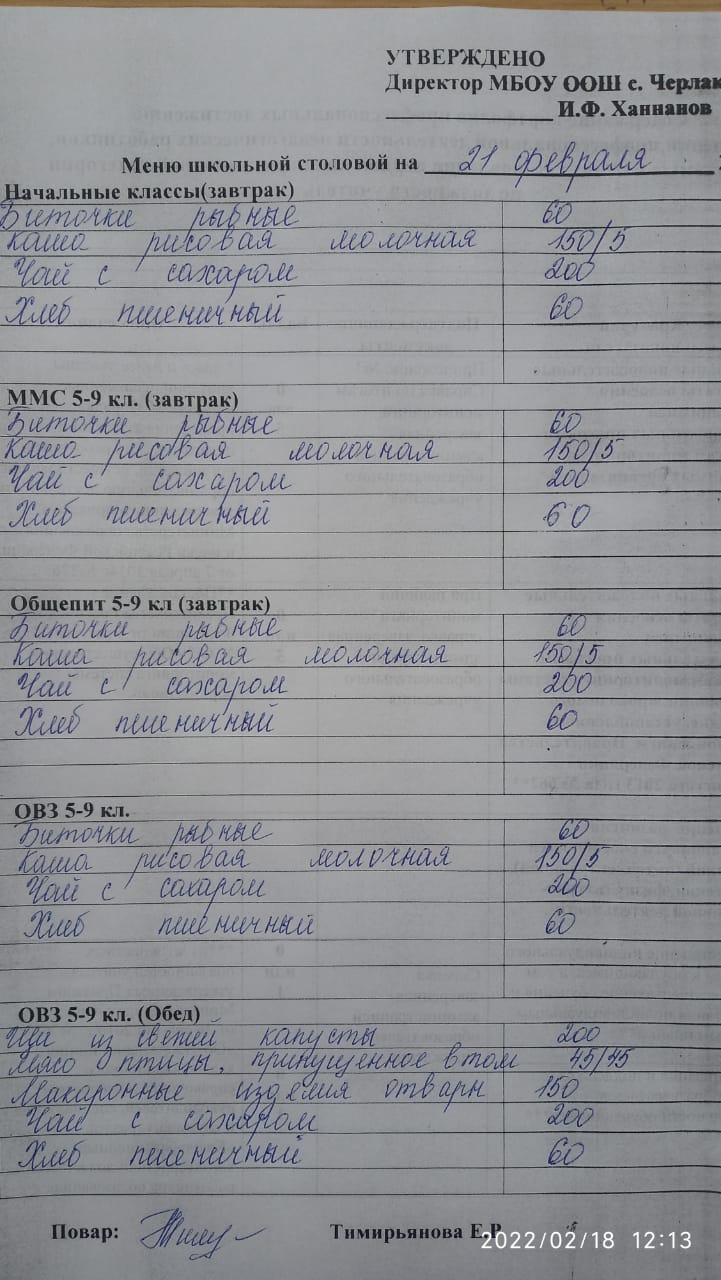 УТВЕРЖДЕНО
Директор МБОУ ООШ с. Черлак
И.Ф. Ханнанов
Меню школьной столовой на 21 февраля
Начальные классы(завтрак)
Биточки рыбные 60
Каша рисовая молочная 150/5
Чай с сахаром 200
Хлеб пшеничный 60
ММС 5-9 кл. (завтрак)
Биточки рыбные 60
Каша рисовая молочная 150/5
Чай с сахаром 200
Хлеб пшеничный 60
Общепит 5-9 кл (завтрак)
Биточки рыбные 60
Каша рисовая молочная 150/5
Чай с сахаром 200
Хлеб пшеничный 60
ОВЗ 5-9 кл.
Биточки рыбные 60
Каша рисовая молочная 150/5
Чай с сахаром 200
Хлеб пшеничный 60
ОВЗ 5-9 кл. (Обед)
Щи из свежей капусты 200
Мясо птицы, припущенное в том 45/45
Макаронные изделия отварн 150
Чай с сахаром 200
Хлеб пшеничный 60
Повар: Тимирьянова Е.Р.
2022/02/18 12:13